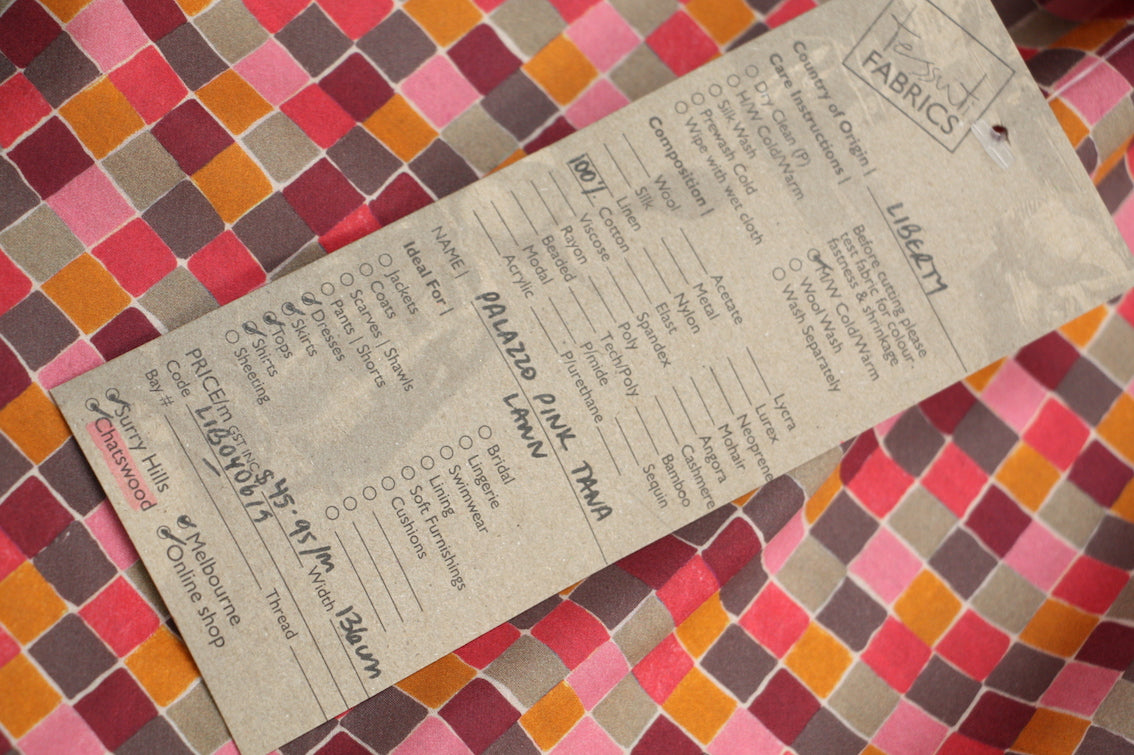 Tessuti
FABRICS
Country of Origin | LIBERTY
Care Instructions |
Dry Clean (P)
H/W Cold/Warm
Silk Wash
Prewash Cold
Wipe with wet cloth
Before cutting please
test fabric for colour
fastness & shrinkage
M/W Cold/Warm
Wool Wash
Wash Separately
Composition |
Wool
Silk
Linen
100% Cotton
Viscose
Rayon
Beaded
Modal
Acrylic
Acetate
Metal
Nylon
Elast
Spandex
Poly
Tech/Poly
P/mide
P/urethane
Lycra
Lurex
Neoprene
Mohair
Angora
Cashmere
Bamboo
Sequin
NAME | PALAZZO PINK TANA
LAWN
Ideal For |
Jackets
Coats
Scarves | Shawls
Pants | Shorts
Dresses
Skirts
Tops
Shirts
Sheeting
Bridal
Lingerie
Swimwear
Lining
Soft Furnishings
Cushions
PRICE/m GST INC. $45.95/m Width 136cm
Code LIB04061J
Bay # Thread
Surry Hills
Chatswood
Melbourne
Online shop